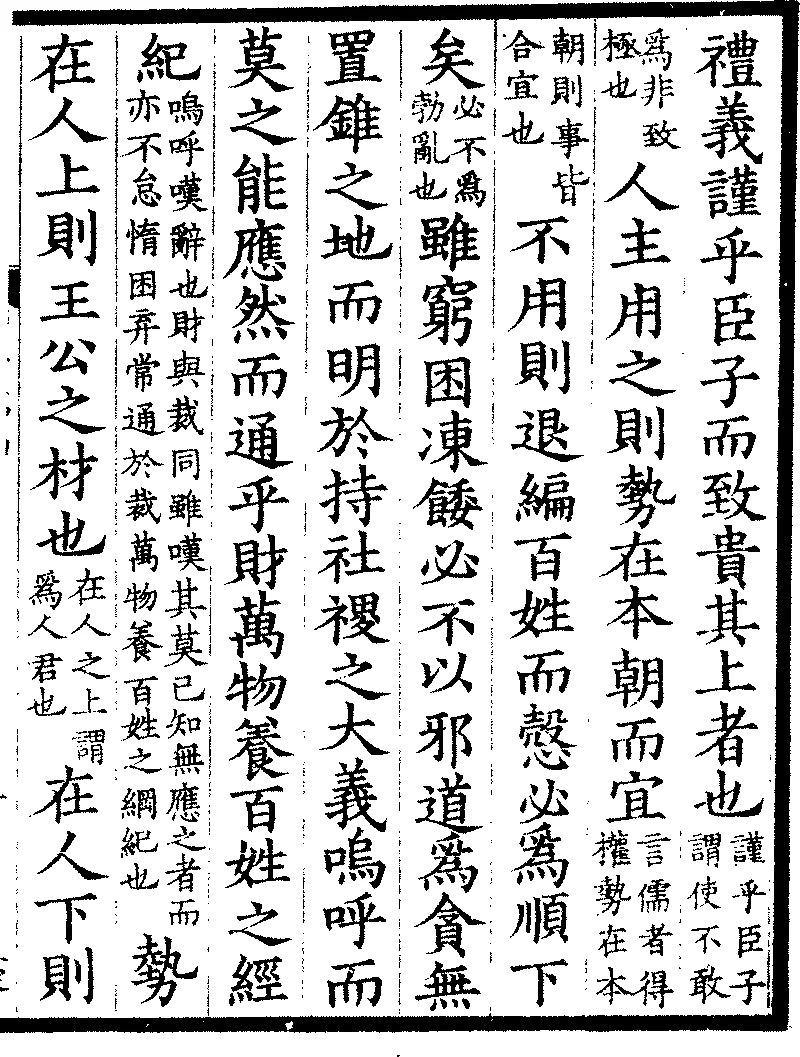 禮義謹乎臣子而致貴其上者也謹乎臣子謂使不敢
爲非致極也人主用之則勢在本朝而宜言儒者得權勢在本
朝則事皆合宜也不用則退編百姓而愨必爲順下
矣必不爲勃亂也雖窮困凍餧必不以邪道爲貪無
置錐之地而明於持社稷之大義嗚呼而
莫之能應然而通乎財萬物養百姓之經
紀嗚呼嘆辭也財與裁同雖嘆其莫己知無應之者而亦不怠惰困弃常通於裁萬物養百姓之綱紀也勢
在人上則王公之材也在人之上謂爲人君也在人下則